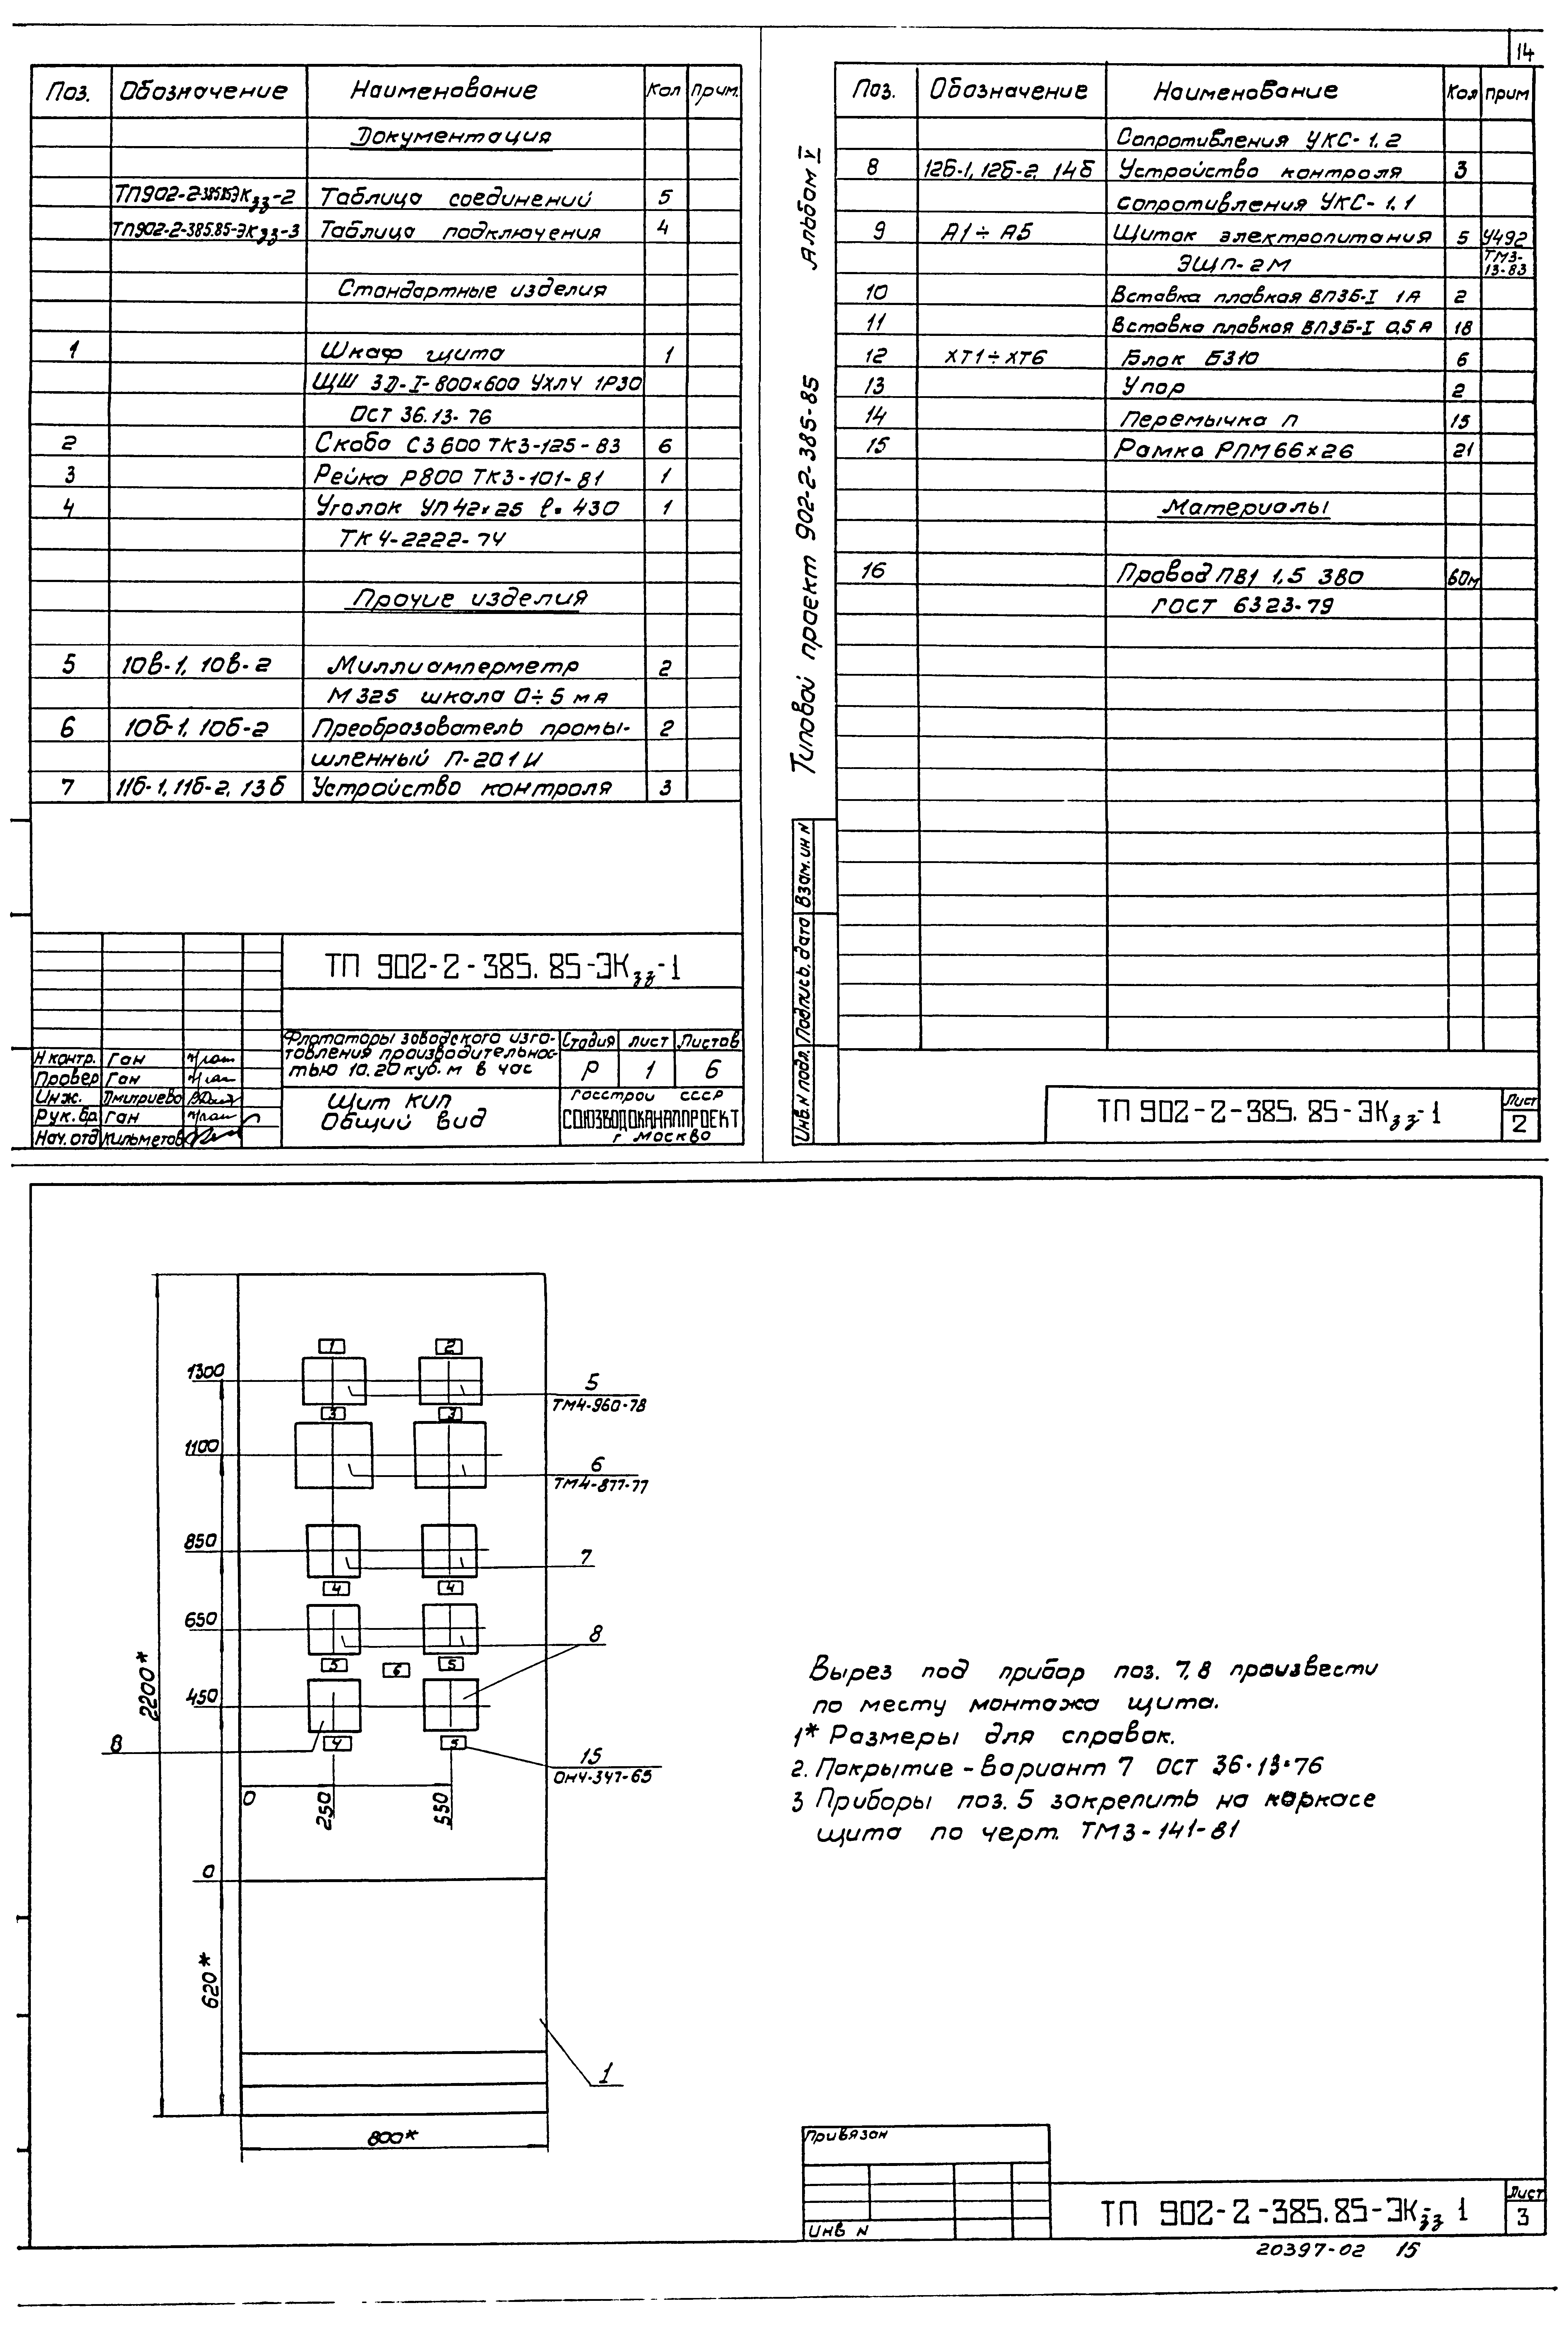 14
Поз. Обозначение Наименование Кол прим.
Документация
ТП902-2-385.85ЭКзз-2 Таблица соединений 5
ТП902-2-385.85-ЭКзз-3 Таблица подключения 4
Стандартные изделия
1 Шкаф щита 1
ЩШ ЗД-I-800×600 УХЛЧ 1Р30
ОСТ 36.13-76
2 Скоба С3600 ТК3-125-83 6
3 Рейка Р800 ТК3-101-81 1
4 Уголок УП42×25 ℓ=430 1
ТК4-2222-74
Прочие изделия
5 10в-1, 10в-2 Миллиамперметр 2
М325 шкала 0÷5 мА
6 10б-1, 10б-2 Преобразователь промы- 2
шленный П-201И
7 11б-1, 11б-2, 13б Устройство контроля 3
ТП 902-2-385.85-ЭКзз-1
Флотаторы заводского изго-
товления производительнос-
тью 10.20 куб. м в час
Стадия лист Листов
Р 1 6
Щит КИП
Общий вид
Госстрой СССР
СОЮЗВОДОКАНАЛПРОЕКТ
г Москва
Н контр. Ган
Провер Ган
Инж. Дмитриева
Рук. бр. Ган
Нач. отд Кильметов
Альбом V
Типовой проект 902-2-385-85
Взам. ин N
Подпись. дата
Инв. N подл.
Поз. Обозначение Наименование Кол прим
Сопротивления УКС-1.2
8 12б-1, 12б-2, 14б Устройство контроля 3
сопротивления УКС-1.1
9 А1÷А5 Щиток электропитания 5 У492
ЭЩП-2М ТМ3-
13-83
10 Вставка плавкая ВПЗБ-I 1А 2
11 Вставка плавкая ВПЗБ-I 0,5А 18
12 ХТ1÷ХТ6 Блок Б310 6
13 Упор 2
14 Перемычка П 15
15 Рамка РПМ 66×26 21
Материалы
16 Провод ПВ1 1,5 380 60м
ГОСТ 6323-79
ТП 902-2-385.85-ЭКзз-1
Лист
2
2200*
1300
1100
850
650
450
0
620*
1 2
3 3
4 4
5 6 5
4 5
5
ТМ4-960-78
6
ТМ4-877-77
7
8
8
15
ОН4-347-65
0 250 550
1
800*
Вырез под прибор поз. 7,8 произвести
по месту монтажа щита.
1* Размеры для справок.
2. Покрытие - вариант 7 ОСТ 36.13-76
3 Приборы поз. 5 закрепить на каркасе
щита по черт. ТМ3-141-81
Привязан
Инв N
ТП 902-2-385.85-ЭКзз 1
Лист
3
20397-02 15